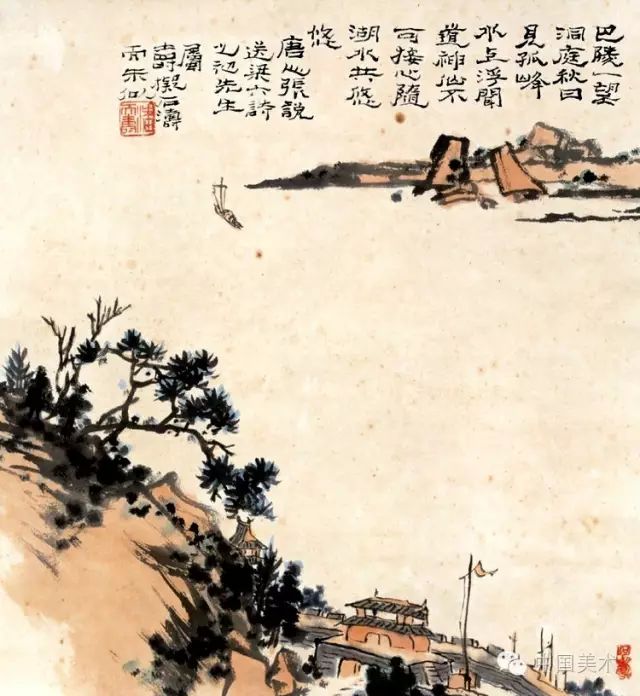 巴陵一望
洞庭秋日
見孤峰
水上浮聞
道神仙不
可接心隨
湖水共悠
悠
唐人張說
送梁六詩
初先生
屬
壽石濤
而未似
中国美术